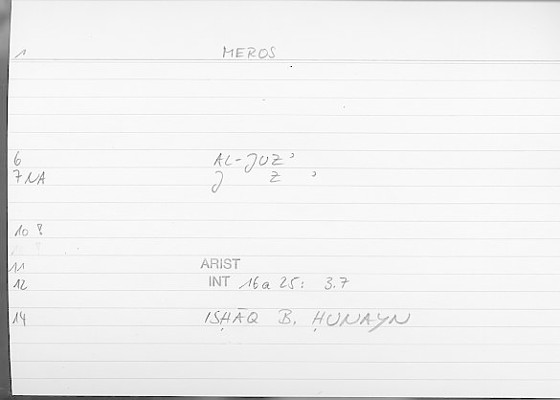 1 MEROS
6 AL-JUZʾ
7 NA J Z ʾ
10 ?
11 ARIST
12 INT 16a 25: 3.7
14 ISḤĀQ B. ḤUNAYN